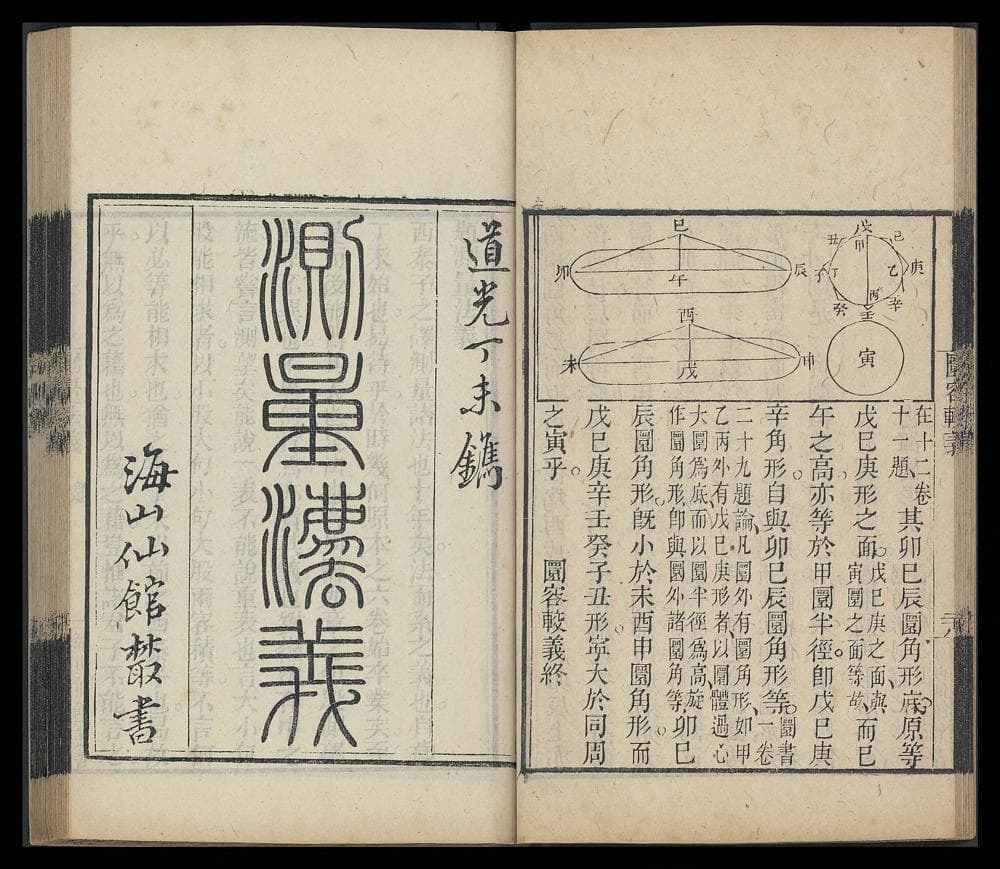 巳
卯
午
辰
酉
未
戊
申
戊
甲
己
丑
庚
乙
子
丁
丙
辛
癸
壬
寅
在十二卷
十一題
其卯巳辰圜角形底原等
戊巳庚形之面
戊巳庚之面與
寅圜之面等故
而巳
午之高亦等於甲圜半徑卽戊巳庚
辛角形自與卯巳辰圜角形等
圜書
一卷
二十九題論凡圜外有角形如甲
乙丙外有戊巳庚形者以圜體過心
大圜爲底而以圜半徑爲高旋
作圜角形卽與圜外諸圜角等
卯巳
辰圜角形旣小於未酉申圜角形而
戊巳庚辛壬癸子丑形寧大於同周
之寅乎
圜容較義終
圜容較義
道光丁未鐫
測量灋義
海山仙館叢書